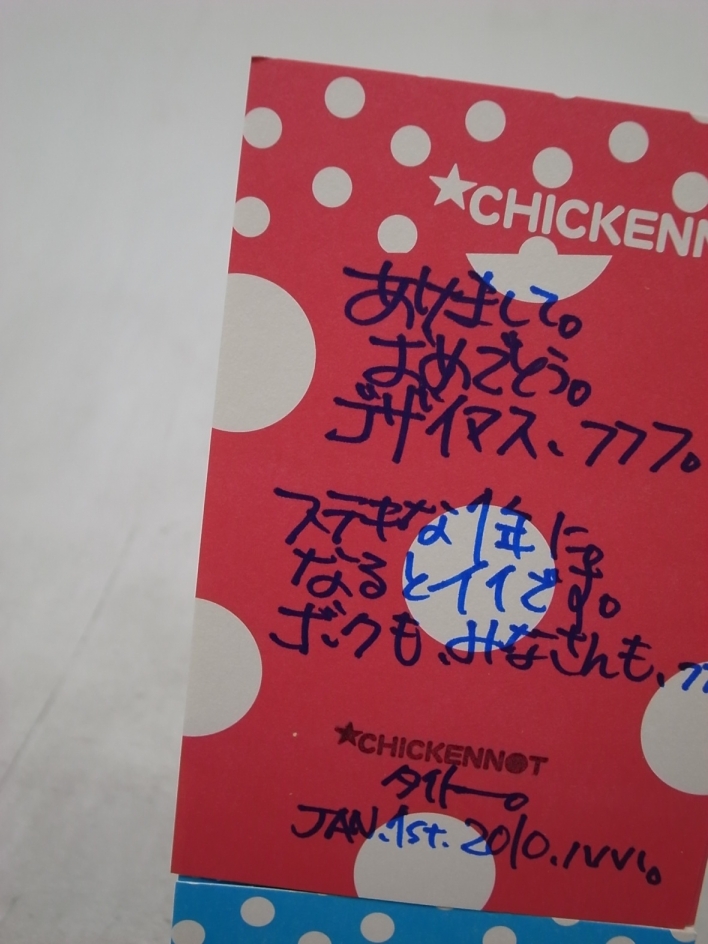 ★CHICKENN
あけまして。
おめでとう。
ゴザイマス、フフフ。
ステキな1年に。
なるとイイです。
ボクも、みなさんも、フフ
★CHICKENNOT
タイトー。
JAN.1st.2010.